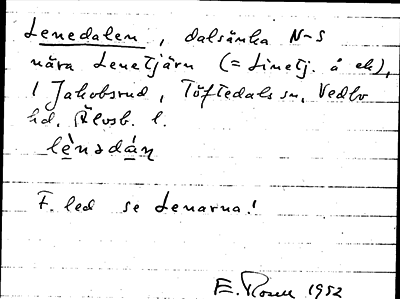 Lenedalen, dalsänka N-S
nära Lenetjärn (= Linetj. å ek),
i Jakobsrud, Töftedals sn, Vedbo
hd, Älvsb. l.
lènədán
F. led se Lenarna!
E. Rosell 1952